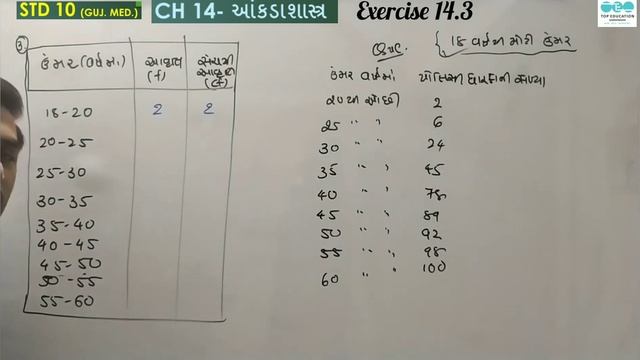 STD 10 (GUJ. MED.)
CH 14- આંકડાશાસ્ત્ર
Exercise 14.3
TOP EDUCATION
18 વર્ષની મોટી ઉંમર
ઉંમર (વર્ષમાં)
આવૃત્તિ (f)
સંચયી આવૃત્તિ (cf)
18-20 2 2
20-25
25-30
30-35
35-40
40-45
45-50
50-55
55-60
ઉંમર વર્ષમાં પોલિસી ધારકોની સંખ્યા
20થી ઓછી 2
25 " " 6
30 " " 24
35 " " 45
40 " " 78
45 " " 89
50 " " 92
55 " " 98
60 " " 100